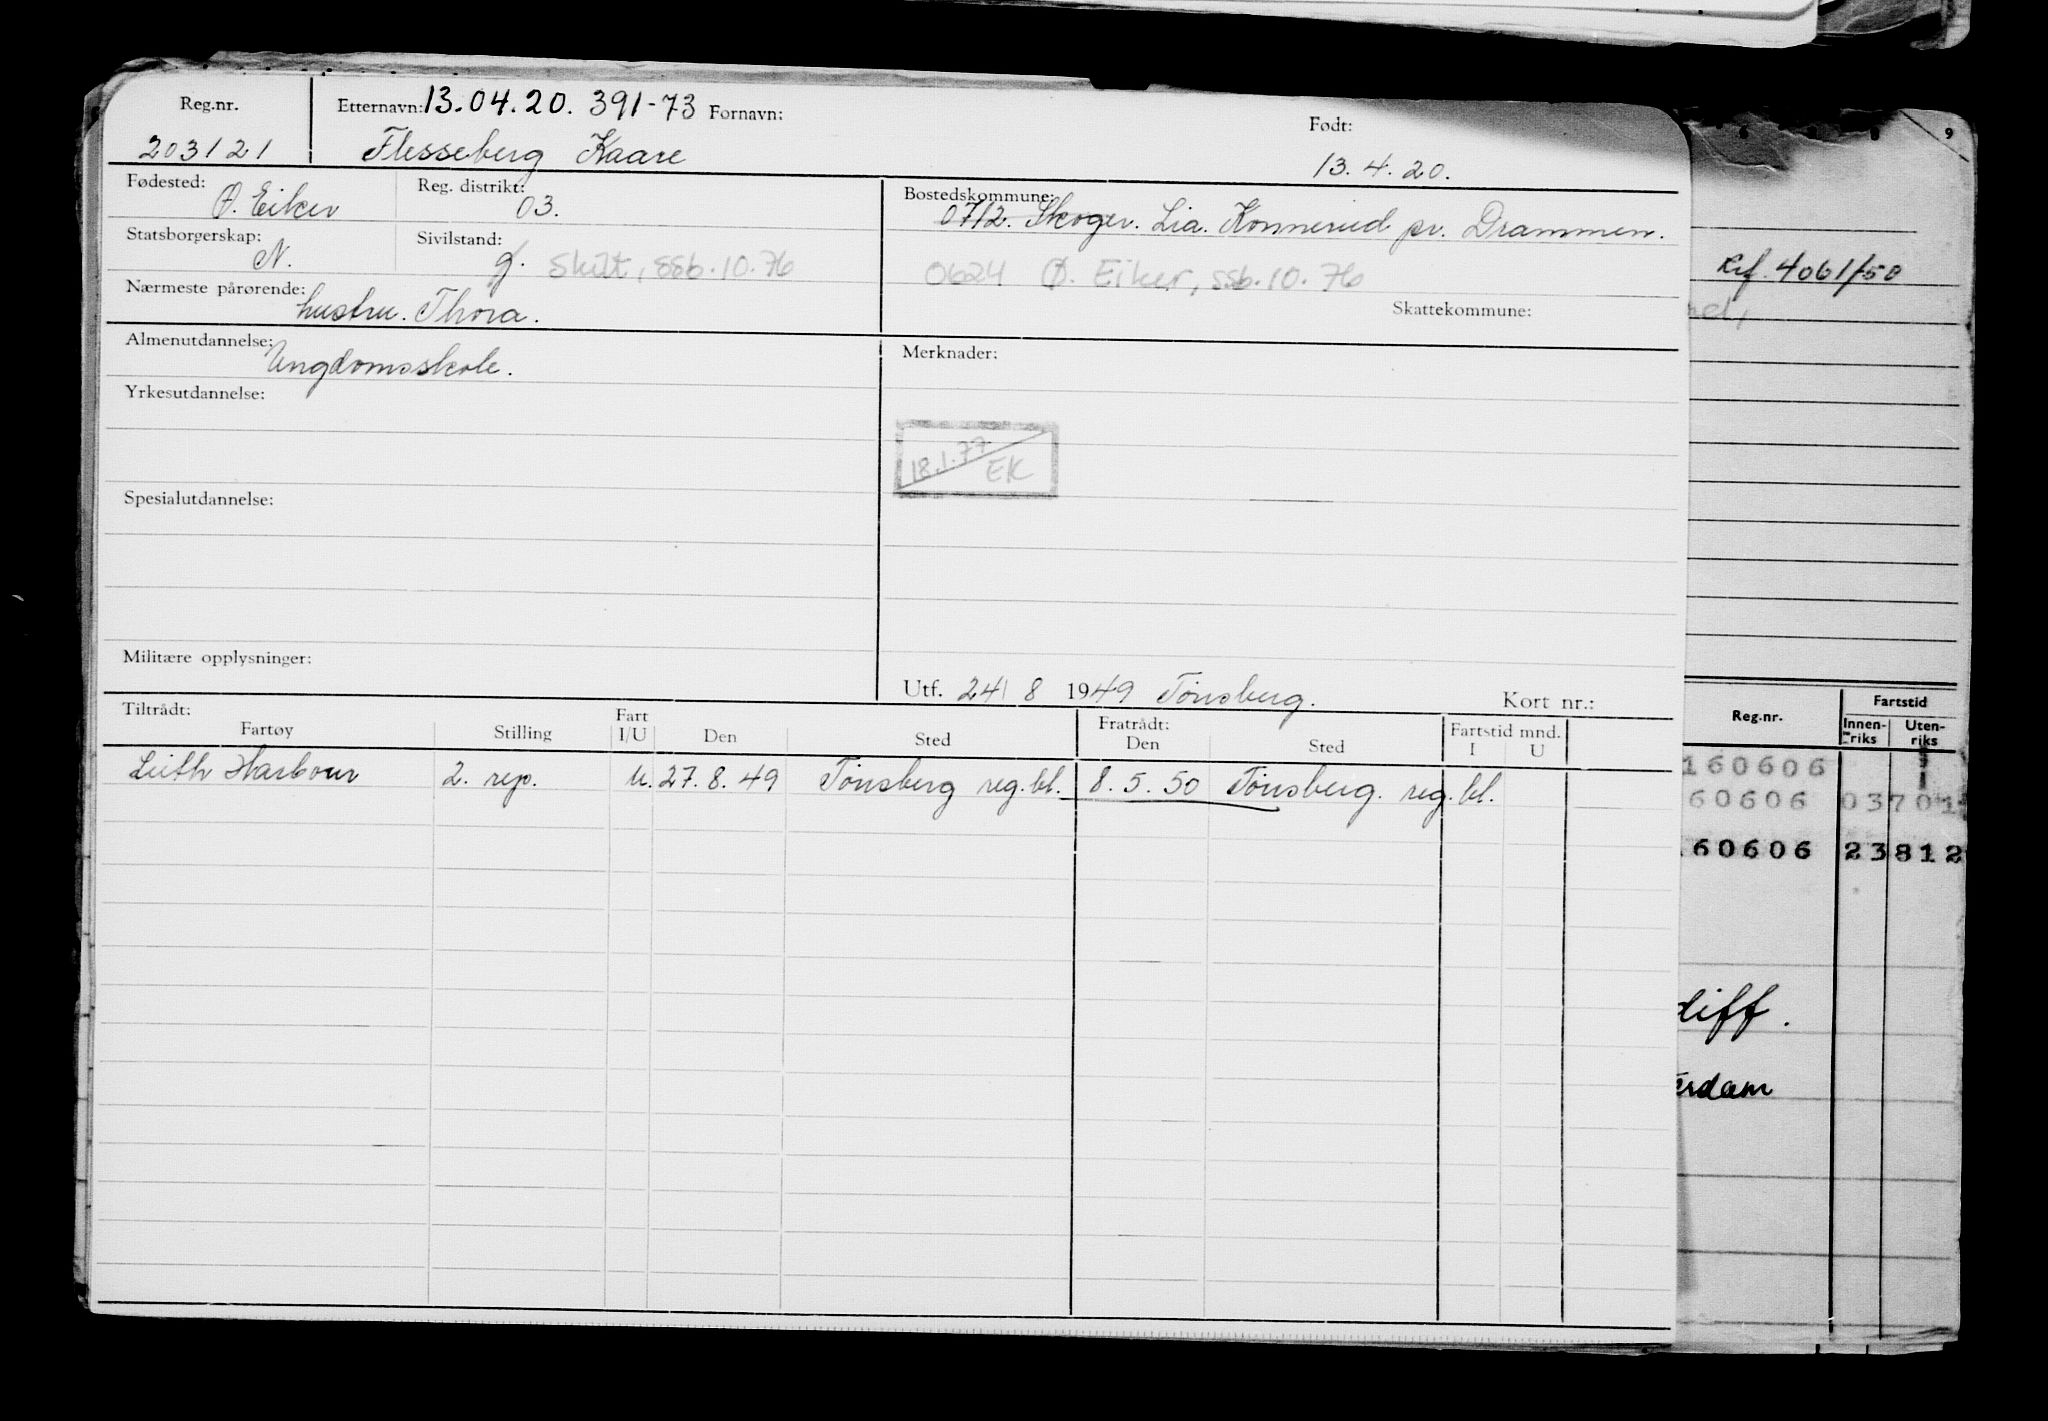 Reg.nr. Etternavn: 13.04.20. 391-73 Fornavn: Født:
203121 Flesseberg Kaare 13.4.20.
Fødested: Ø. Eiker Reg. distrikt: 03. Bostedskommune: 0712. Skoger. Lia. Konnerud pr. Drammen.
Statsborgerskap: N. Sivilstand: g. Skilt, ssb. 10.76 0624 Ø. Eiker, ssb. 10.76
Nærmeste pårørende: hustru. Thora. Skattekommune:
Almenutdannelse: Ungdomsskole. Merknader:
Yrkesutdannelse:
18.1.77 EK
Spesialutdannelse:
Militære opplysninger:
Utf. 24/8 1949 Tønsberg. Kort nr.:
Tiltrådt: Fart Fratrådt: Fartstid mnd.
Fartøy Stilling I/U Den Sted Den Sted I U
Leith Harbour 2. rep. U. 27.8.49 Tønsberg reg. bl. 8.5.50 Tønsberg. reg. bl.
9
Ref. 4061/50
Reg.nr. Fartstid
Innen-riks Uten-riks
160606
60606 03701
160606 23812
diff.
erdam